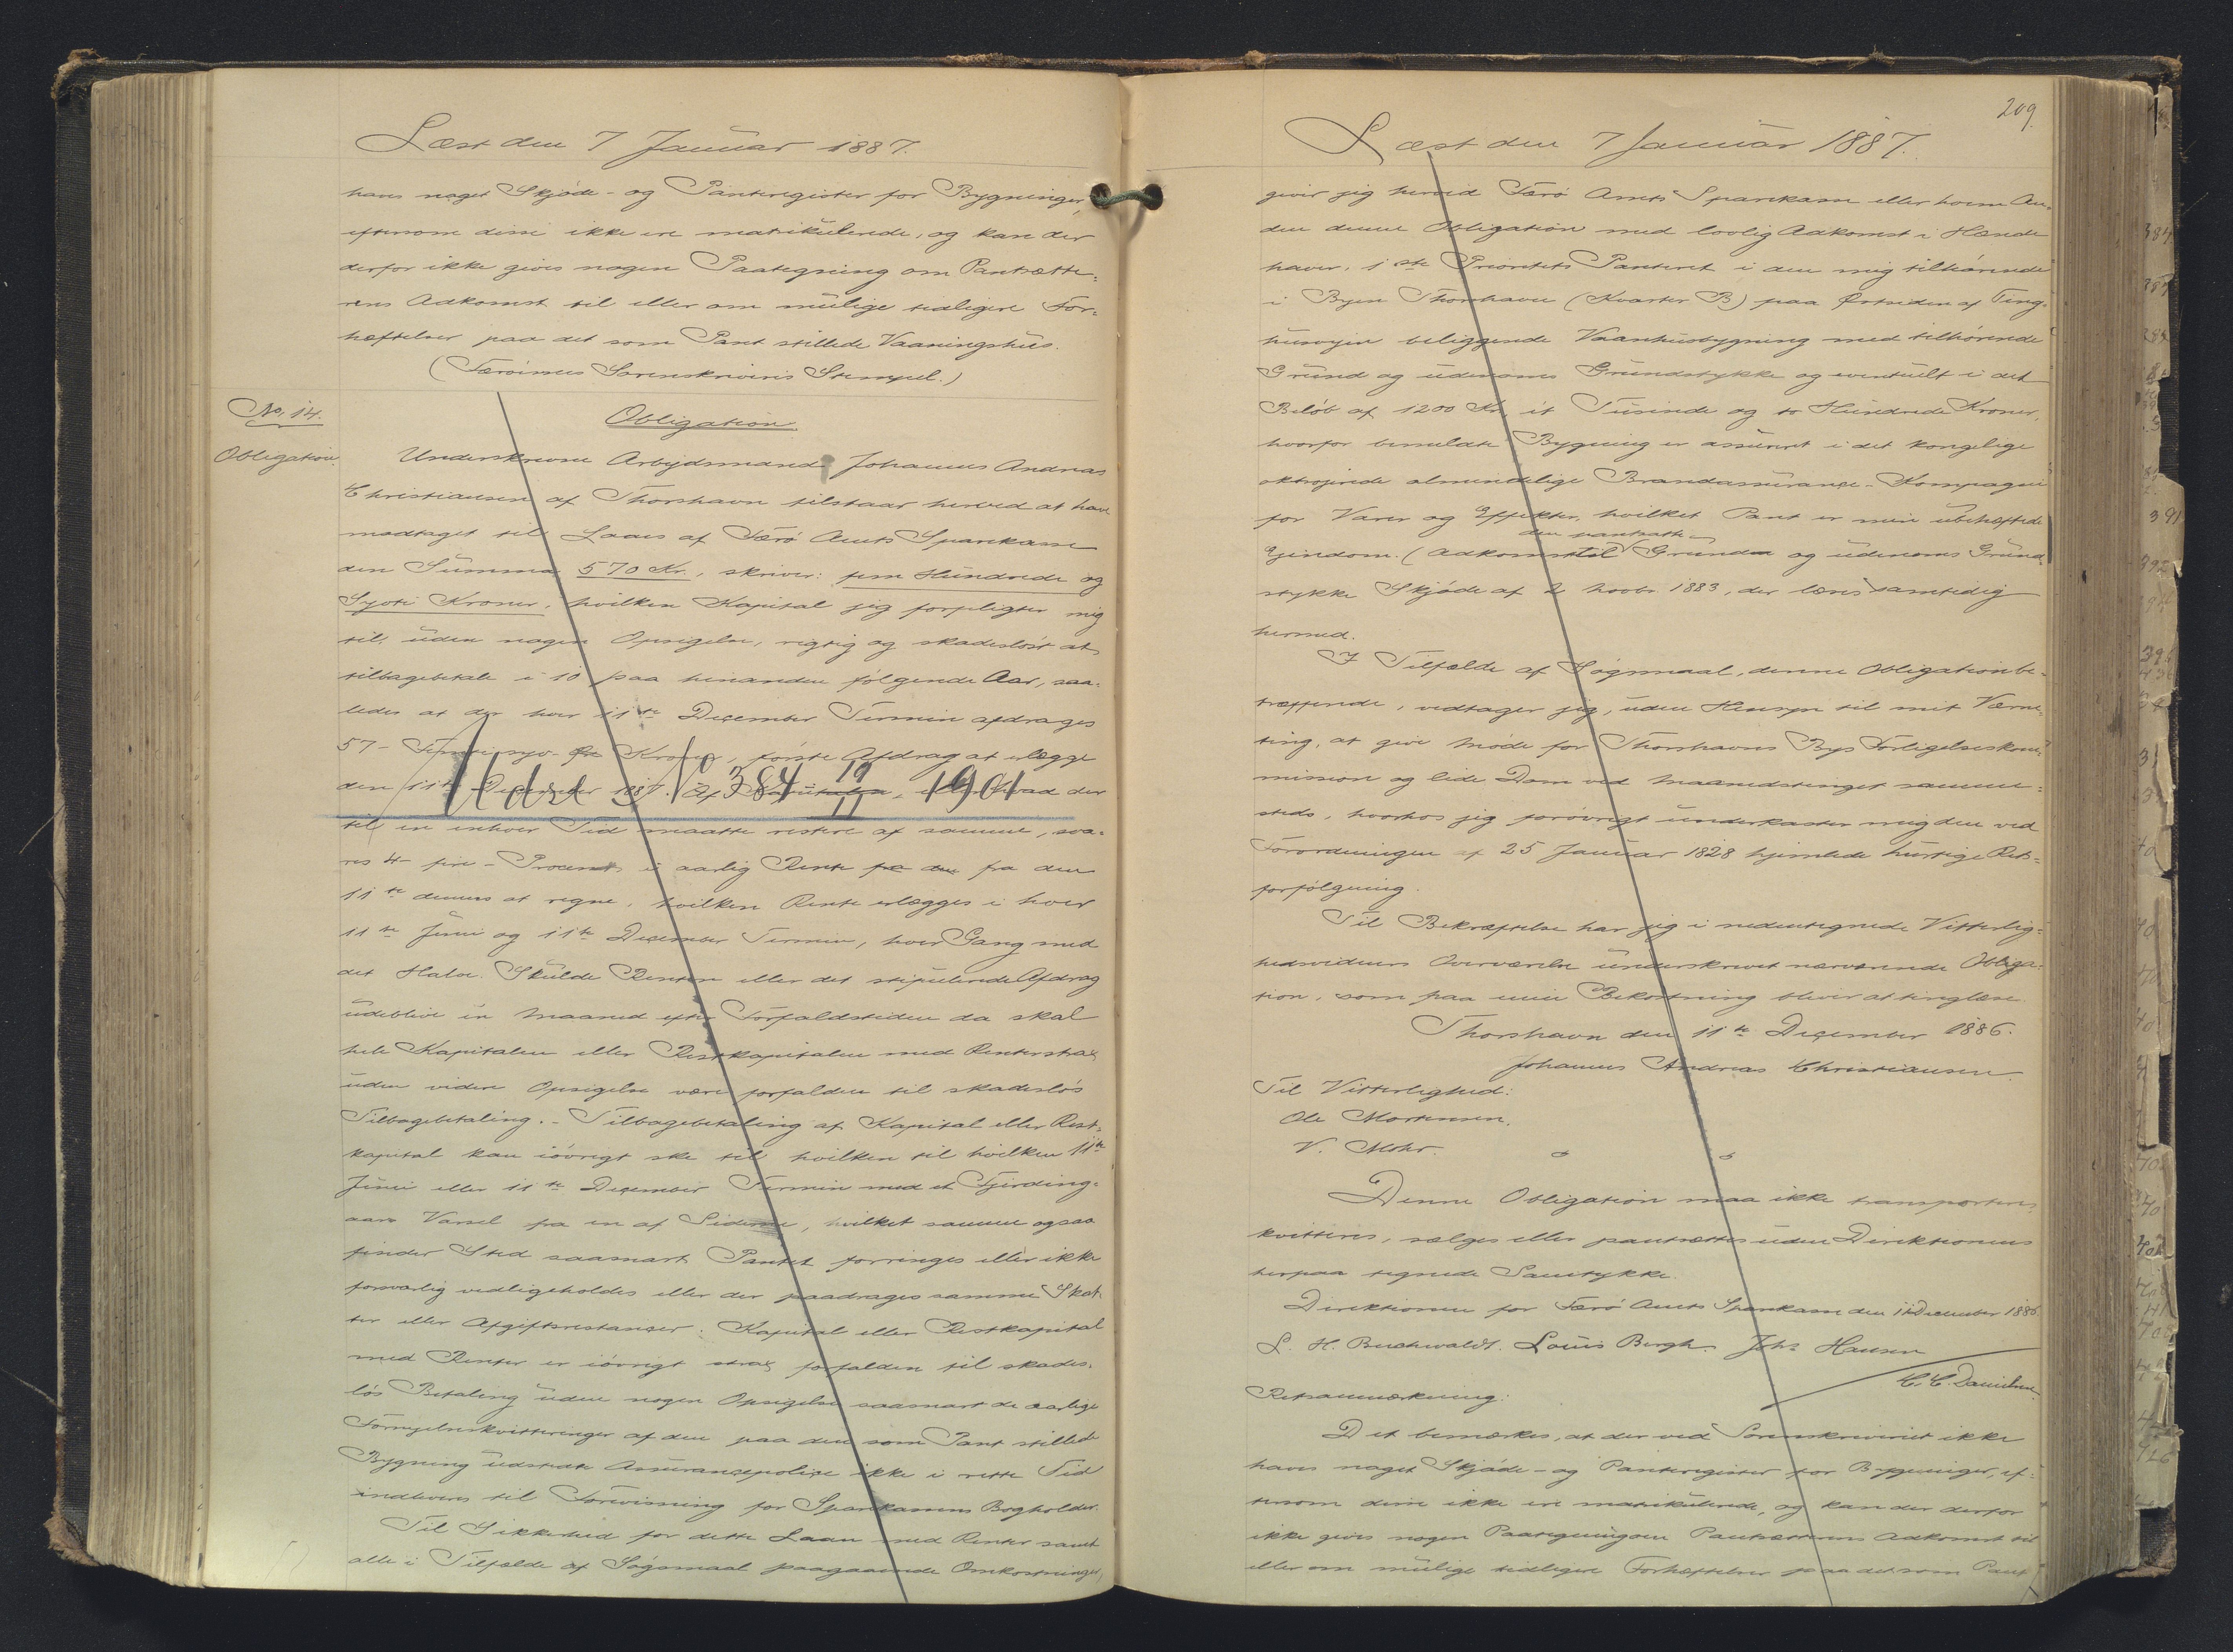 Læst den 7 Januar 1887.
haves noget Skjøde- og Panteregister for Bygninger,
eftersom disse ikke ere matrikulerede, og kan der
derfor ikke gives nogen Paategning om Pantsætte-
rens Adkomst til eller om mulige tidligere For-
hæftelser paa det som Pant stillede Vaaningshus.
(Færøernes Sorenskriveris Stempel.)
No. 14.
Obligation.
Obligation.
Underskrevne Arbejdsmand Johannes Andreas
Christiansen af Thorshavn tilstaar herved at have
modtaget til Laans af Færø Amts Sparekasse
den Summa 570 Kr., skriver: fem Hundrede og
Syvti Kroner, hvilken Kapital jeg forpligter mig
til, uden nogen Opsigelse, rigtig og skadesløst at
tilbagebetale i 10 paa hinanden følgende Aar, saa-
ledes at der hver 11te December Termin afdrages
57- Kroner, første Afdrag at erlægge
den 11te December 1887. Af Kapitalen, eller hvad der
Udslet 384 19/11 1901
til en enhver Tid maatte restere af samme, sva-
res 4- fire- Procent i aarlig Rente fra den fra den
11te dennes at regne, hvilken Rente erlægges i hver
11te Juni og 11te December Termin, hver Gang med
det Halve. Skulde Renten eller det stipulerede Afdrag
udeblive en Maaned efter Forfaldstiden da skal
hele Kapitalen eller Restkapitalen med Renter strax
uden videre Opsigelse være forfalden til skadesløs
Tilbagebetaling.- Tilbagebetaling af Kapital eller Rest-
kapital kan iøvrigt ske til hvilken til hvilken 11te
Juni eller 11te December Termin med et Fjerding-
aars Varsel fra en af Siderne, hvilket samme ogsaa
finder Sted saasnart Pantet forringes eller ikke
forsvarlig vedligeholdes eller der paadrages samme Skat-
ter eller Afgiftsrestanser; Kapital eller Restkapital
med Renter er iøvrigt strax forfalden til skades-
løs Betaling uden nogen Opsigelse saasnart de aarlige
Fornyelseskvitteringer af den paa den som Pant stillede
Bygning udstedte Assurancepolice ikke i rette Tid
indleveres til Forevisning for Sparekassens Bogholder.
Til Sikkerhed for dette Laan med Renter samt
alle i Tilfælde af Søgsmaal paagaaende Omkostninger,
209.
Læst den 7 Januar 1887.
giver jeg herved Færø Amts Sparekasse eller hvem An-
den denne Obligation med lovlig Adkomst i Hænde
haver, 1ste Prioritets Panteret i den mig tilhørende
i Byen Thorshavn (Kvarter B) paa Østsiden af Ting-
husvejen beliggende Vaanhusbygning med tilhørende
Grund og udenoms Grundstykke og eventuelt i det
Beløb af 1200 Kr. et Tusinde og to Hundrede Kroner,
hvorfor bemeldte Bygning er assureret i det kongelige
oktrojerede almindelige Brandassurance-Kompagni
for Varer og Effekter, hvilket Pant er min ubehæftede
den pantsatte
Ejendom. (Adkomst til Grunden og udenoms Grund-
stykke Skjøde af 2 Novbr. 1883, der læses samtidig
hermed.
I Tilfælde af Søgsmaal, denne Obligation be-
træffende, vedtager jeg, uden Hensyn til mit Værne-
ting, at give Møde for Thorshavns Bys Forligelseskom-
mission og lide Dom ved Maanedstinget samme-
steds, hvorhos jeg forøvrigt underkaster mig den ved
Forordningen af 25 Januar 1828 hjemlede hurtige Rets-
forfølgning.
Til Bekræftelse har jeg i nedentegnede Vitterlig-
hedsvidners Overværelse underskrevet nærværende Obliga-
tion, som paa min Bekostning bliver at tinglæse.
Thorshavn den 11te December 1886.
Johannes Andreas Christiansen.
Til Vitterlighed:
Ole Mortensen.
V. Mohr.
Denne Obligation maa ikke transporteres,
kvitteres, sælges eller pantsættes uden Direktionens
herpaa tegnede Samtykke.
Direktionen for Færø Amts Sparekasse den 11 December 1886.
L. H. Buchwaldt. Louis Bergh. Johs Hansen
C. C. Danielsen.
Retsanmærkning:
Det bemærkes, at der ved Sorenskriveriet ikke
haves noget Skjøde- og Panteregister for Bygninger, ef-
tersom disse ikke ere matrikulerede, og kan der derfor
ikke gives nogen Paategning om Pantsætterens Adkomst til
eller om mulige tidligere Forhæftelser paa det som Pant